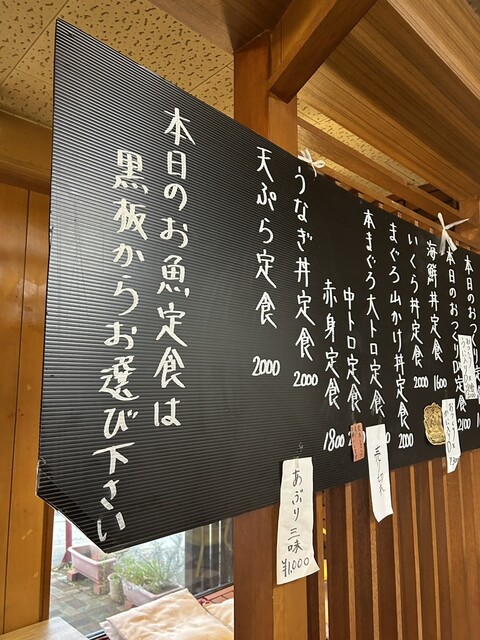 本日のおつ
本日のおつくり定食
2100
海鮮丼定食
1600
いくら丼定食
2000
まぐろ山かけ丼定食
2100
本まぐろ大トロ定食
中トロ定食
赤身定食
1800
うなぎ丼定食
2000
天ぷら定食
2000
本日のお魚定食は
黒板からお選び下さい
売り切れ
あぶり三味
¥1,000